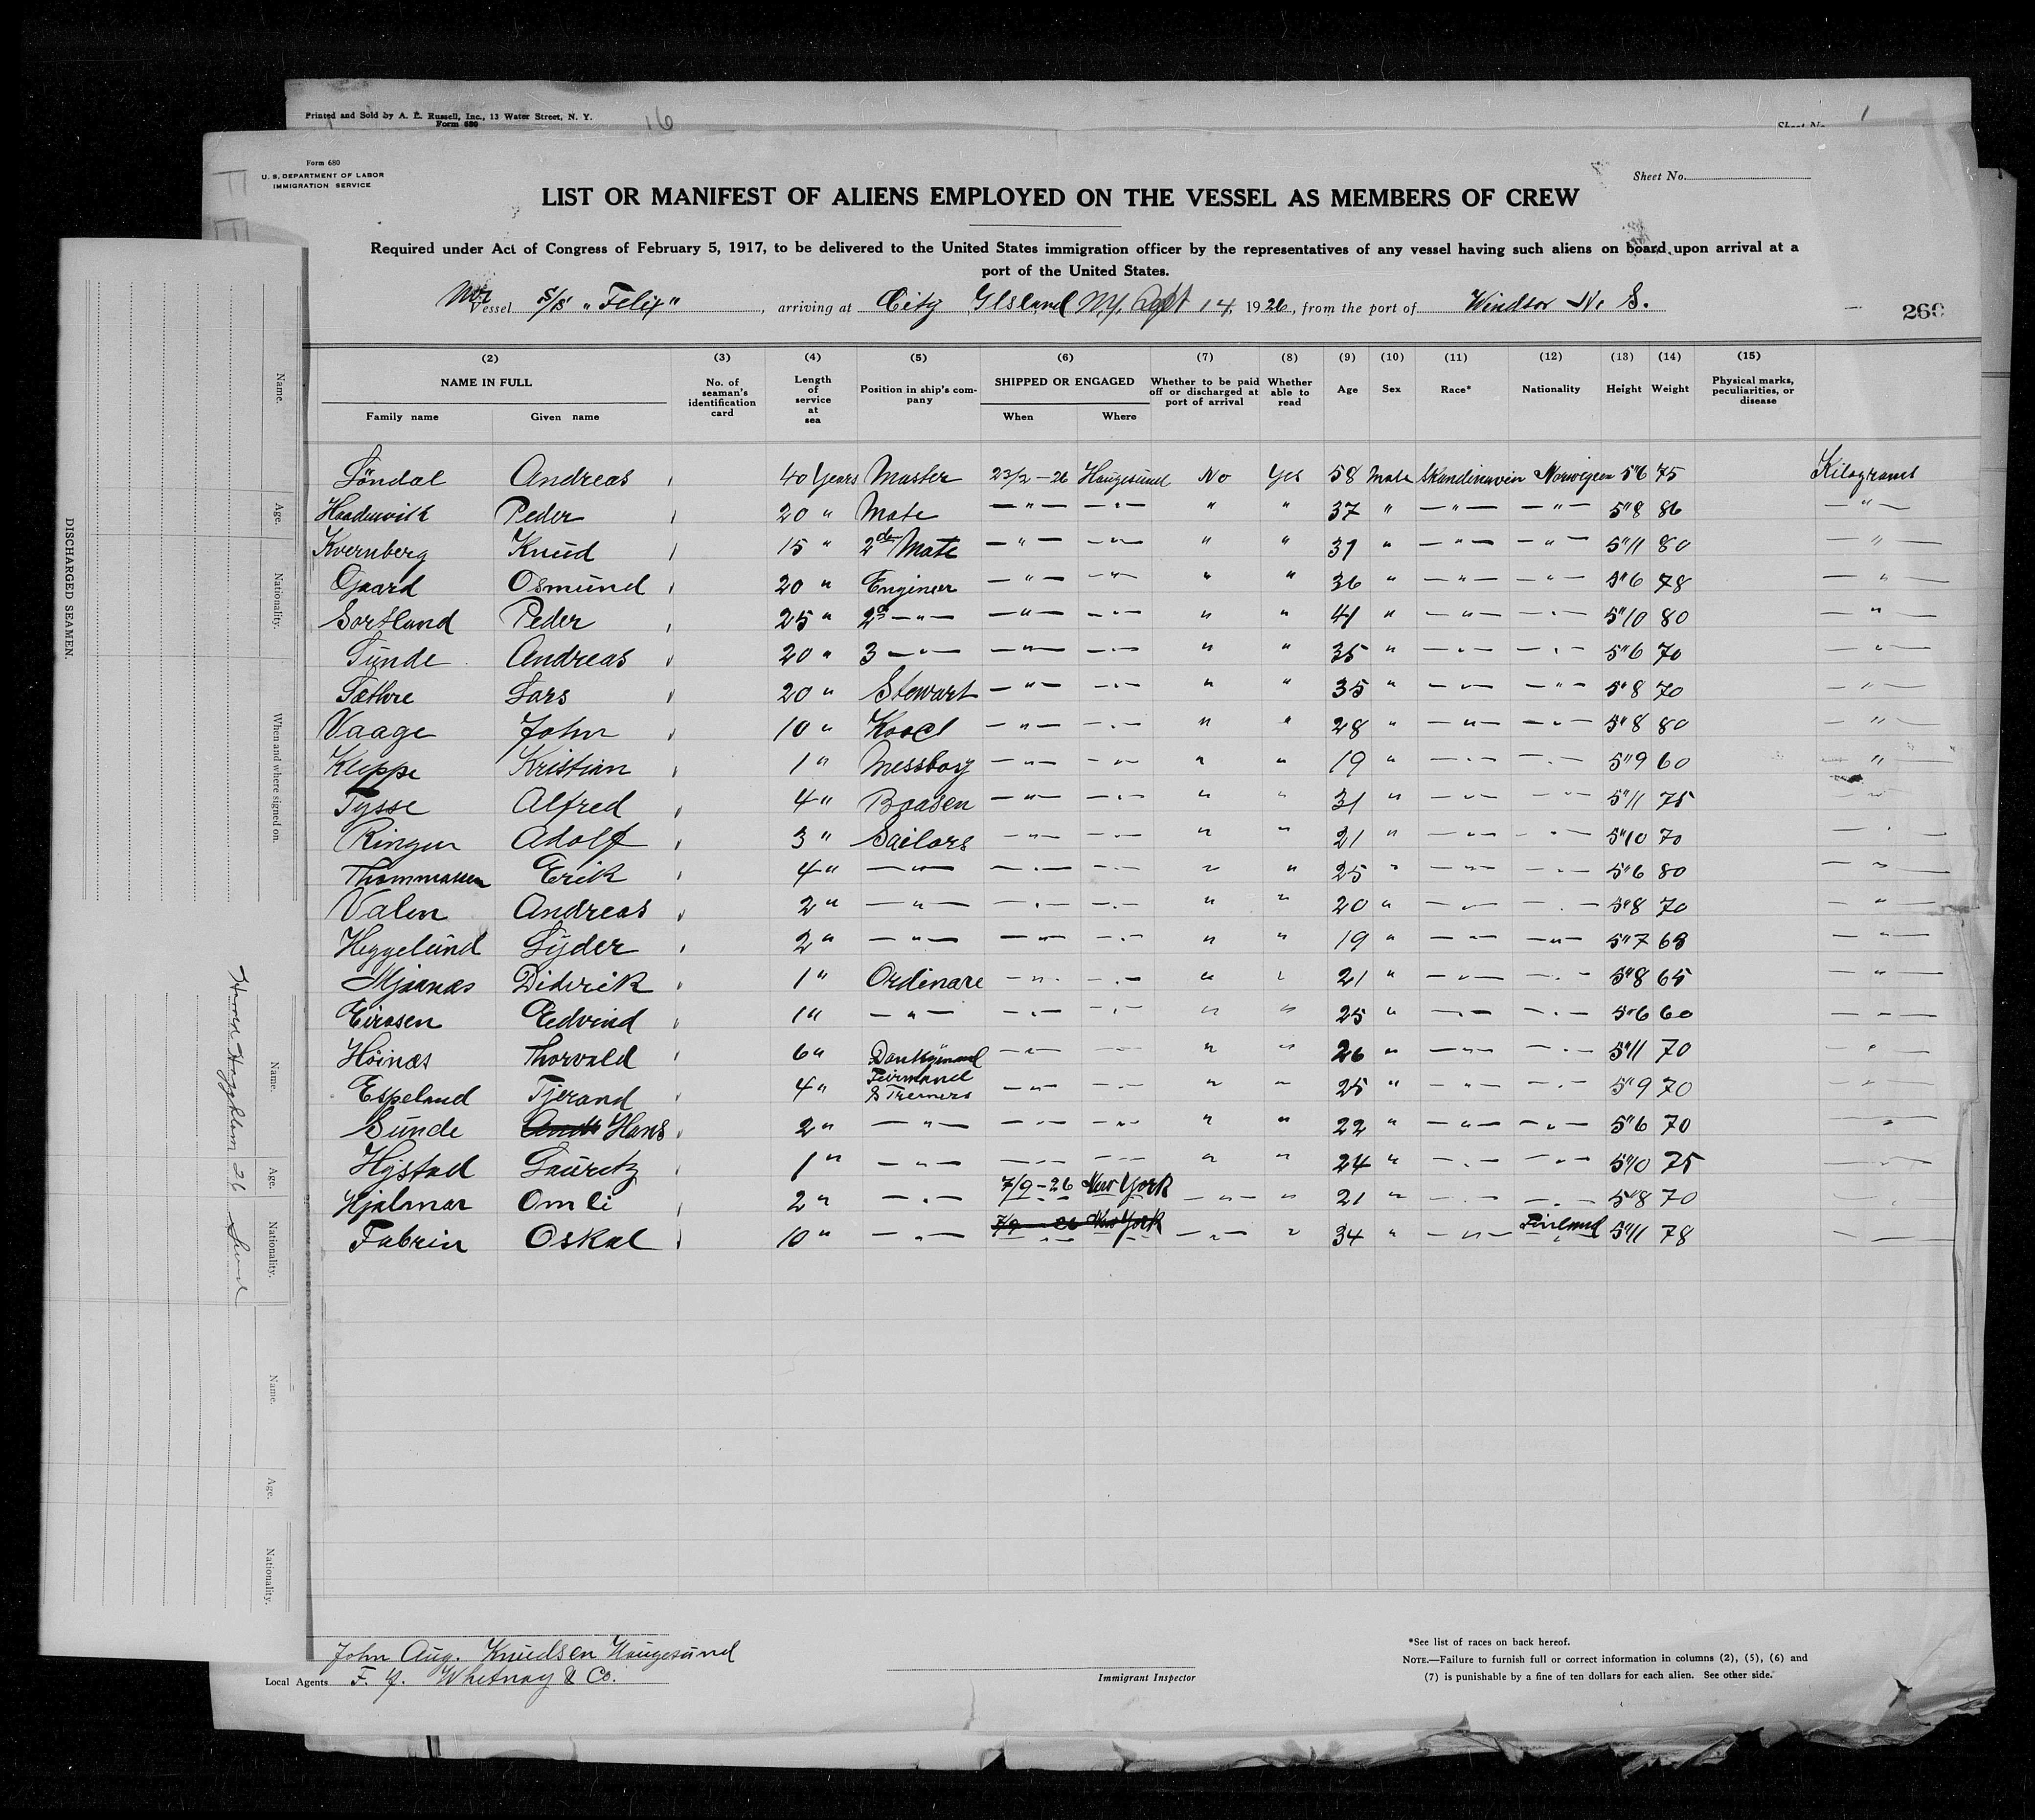 Printed and Sold by A. E. Russell, Inc., 13 Water Street, N. Y.
Form 680
16
Sheet No. 1
Form 680
U. S. DEPARTMENT OF LABOR
IMMIGRATION SERVICE
Sheet No.
LIST OR MANIFEST OF ALIENS EMPLOYED ON THE VESSEL AS MEMBERS OF CREW
Required under Act of Congress of February 5, 1917, to be delivered to the United States immigration officer by the representatives of any vessel having such aliens on board upon arrival at a
port of the United States.
Nor Vessel S/S "Felix", arriving at City Island N.Y. Sept 14, 1926, from the port of Windsor N. S.
260
(2) (3) (4) (5) (6) (7) (8) (9) (10) (11) (12) (13) (14) (15)
NAME IN FULL No. of seaman's identification card Length of service at sea Position in ship's company SHIPPED OR ENGAGED Whether to be paid off or discharged at port of arrival Whether able to read Age Sex Race* Nationality Height Weight Physical marks, peculiarities, or disease
Family name Given name When Where
Söndal Andreas 40 Years Master 23/2-26 Haugesund No Yes 58 Male Skandinavin Norwigean 5"6 75 Kilograms
Haadenvik Peder 20 " Mate —"— —"— " " 37 " —"— —"— 5"8 86 —"—
Kvernberg Knud 15 " 2de Mate —"— —"— " " 31 " —"— —"— 5"11 80 —"—
Gaard Osmund 20 " Engineer —"— —"— " " 36 " —"— —"— 5"6 78 —"—
Sortland Peder 25 " 2d —"— —"— —"— " " 41 " —"— —"— 5"10 80 —"—
Sunde Andreas 20 " 3 —"— —"— —"— " " 35 " —"— —"— 5"6 70 —"—
Sæthre Lars 20 " Stewart —"— —"— " " 35 " —"— —"— 5"8 70 —"—
Vaage John 10 " Koock —"— —"— " " 28 " —"— —"— 5"8 80 —"—
Kleppe Kristian 1 " Messboy —"— —"— " " 19 " —"— —"— 5"9 60 —"—
Tysse Alfred 4 " Boasen —"— —"— " " 31 " —"— —"— 5"11 75 —"—
Ringen Adolf 3 " Sailors —"— —"— " " 21 " —"— —"— 5"10 70 —"—
Thommassen Erik 4 " —"— —"— —"— " " 25 " —"— —"— 5"6 80 —"—
Valen Andreas 2 " —"— —"— —"— " " 20 " —"— —"— 5"8 70 —"—
Heggelund Lyder 2 " —"— —"— —"— " " 19 " —"— —"— 5"7 68 —"—
Mjaanæs Diderik 1 " Ordinare —"— —"— " " 21 " —"— —"— 5"8 65 —"—
Eirosen Eedvind 1 " —"— —"— —"— " " 25 " —"— —"— 5"6 60 —"—
Höinæs Thorvald 6 " Donkymand —"— —"— " " 26 " —"— —"— 5"11 70 —"—
Espeland Tjerand 4 " Feirmand & Tremers —"— —"— " " 25 " —"— —"— 5"9 70 —"—
Sunde Hans 2 " —"— —"— —"— " " 22 " —"— —"— 5"6 70 —"—
Hystad Lauritz 1 " —"— —"— —"— " " 24 " —"— —"— 5"10 75 —"—
Hjalmar Omli 2 " —"— 7/9-26 New York —"— " 21 " —"— —"— 5"8 70
Fabrin Oskal 10 " —"— 7/9 26 New York —"— " 34 " —"— Finland 5"11 78 —"—
John Aug. Knudsen Haugesund
Local Agents F. Y. Whitney & Co.
Immigrant Inspector
*See list of races on back hereof.
NOTE.—Failure to furnish full or correct information in columns (2), (5), (6) and
(7) is punishable by a fine of ten dollars for each alien. See other side.
DISCHARGED SEAMEN.
Name. Age. Nationality. When and where signed on.
Name. Age. Nationality.
Name. Age. Nationality.
26